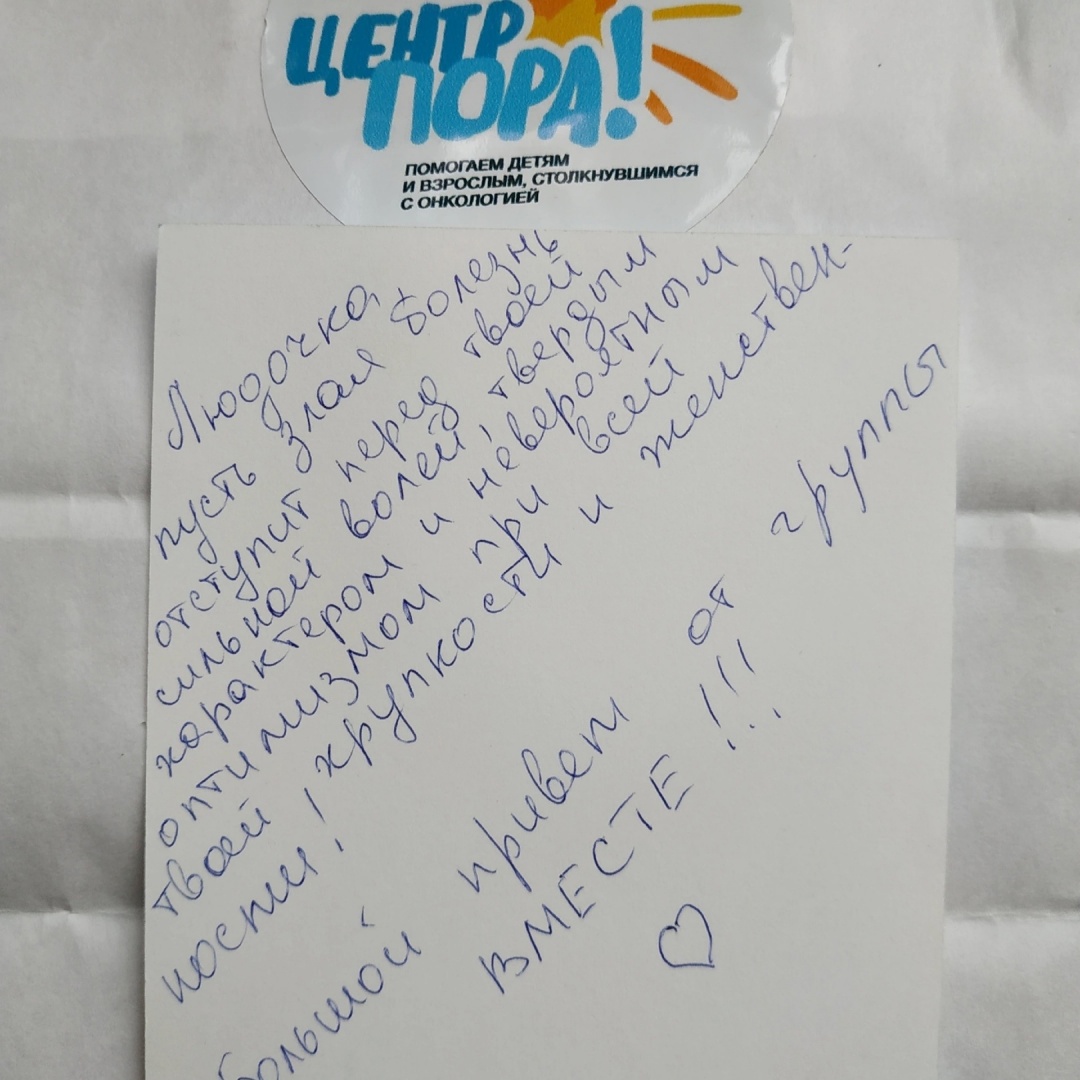 ЦЕНТР
ПОРА!
ПОМОГАЕМ ДЕТЯМ
И ВЗРОСЛЫМ, СТОЛКНУВШИМСЯ
С ОНКОЛОГИЕЙ
Людочка,
пусть злая болезнь
отступит перед твоей
сильной волей, твердым
характером и невероятным
оптимизмом при всей
твоей хрупкости и женствен-
ности!
Большой привет от группы
ВМЕСТЕ!!!